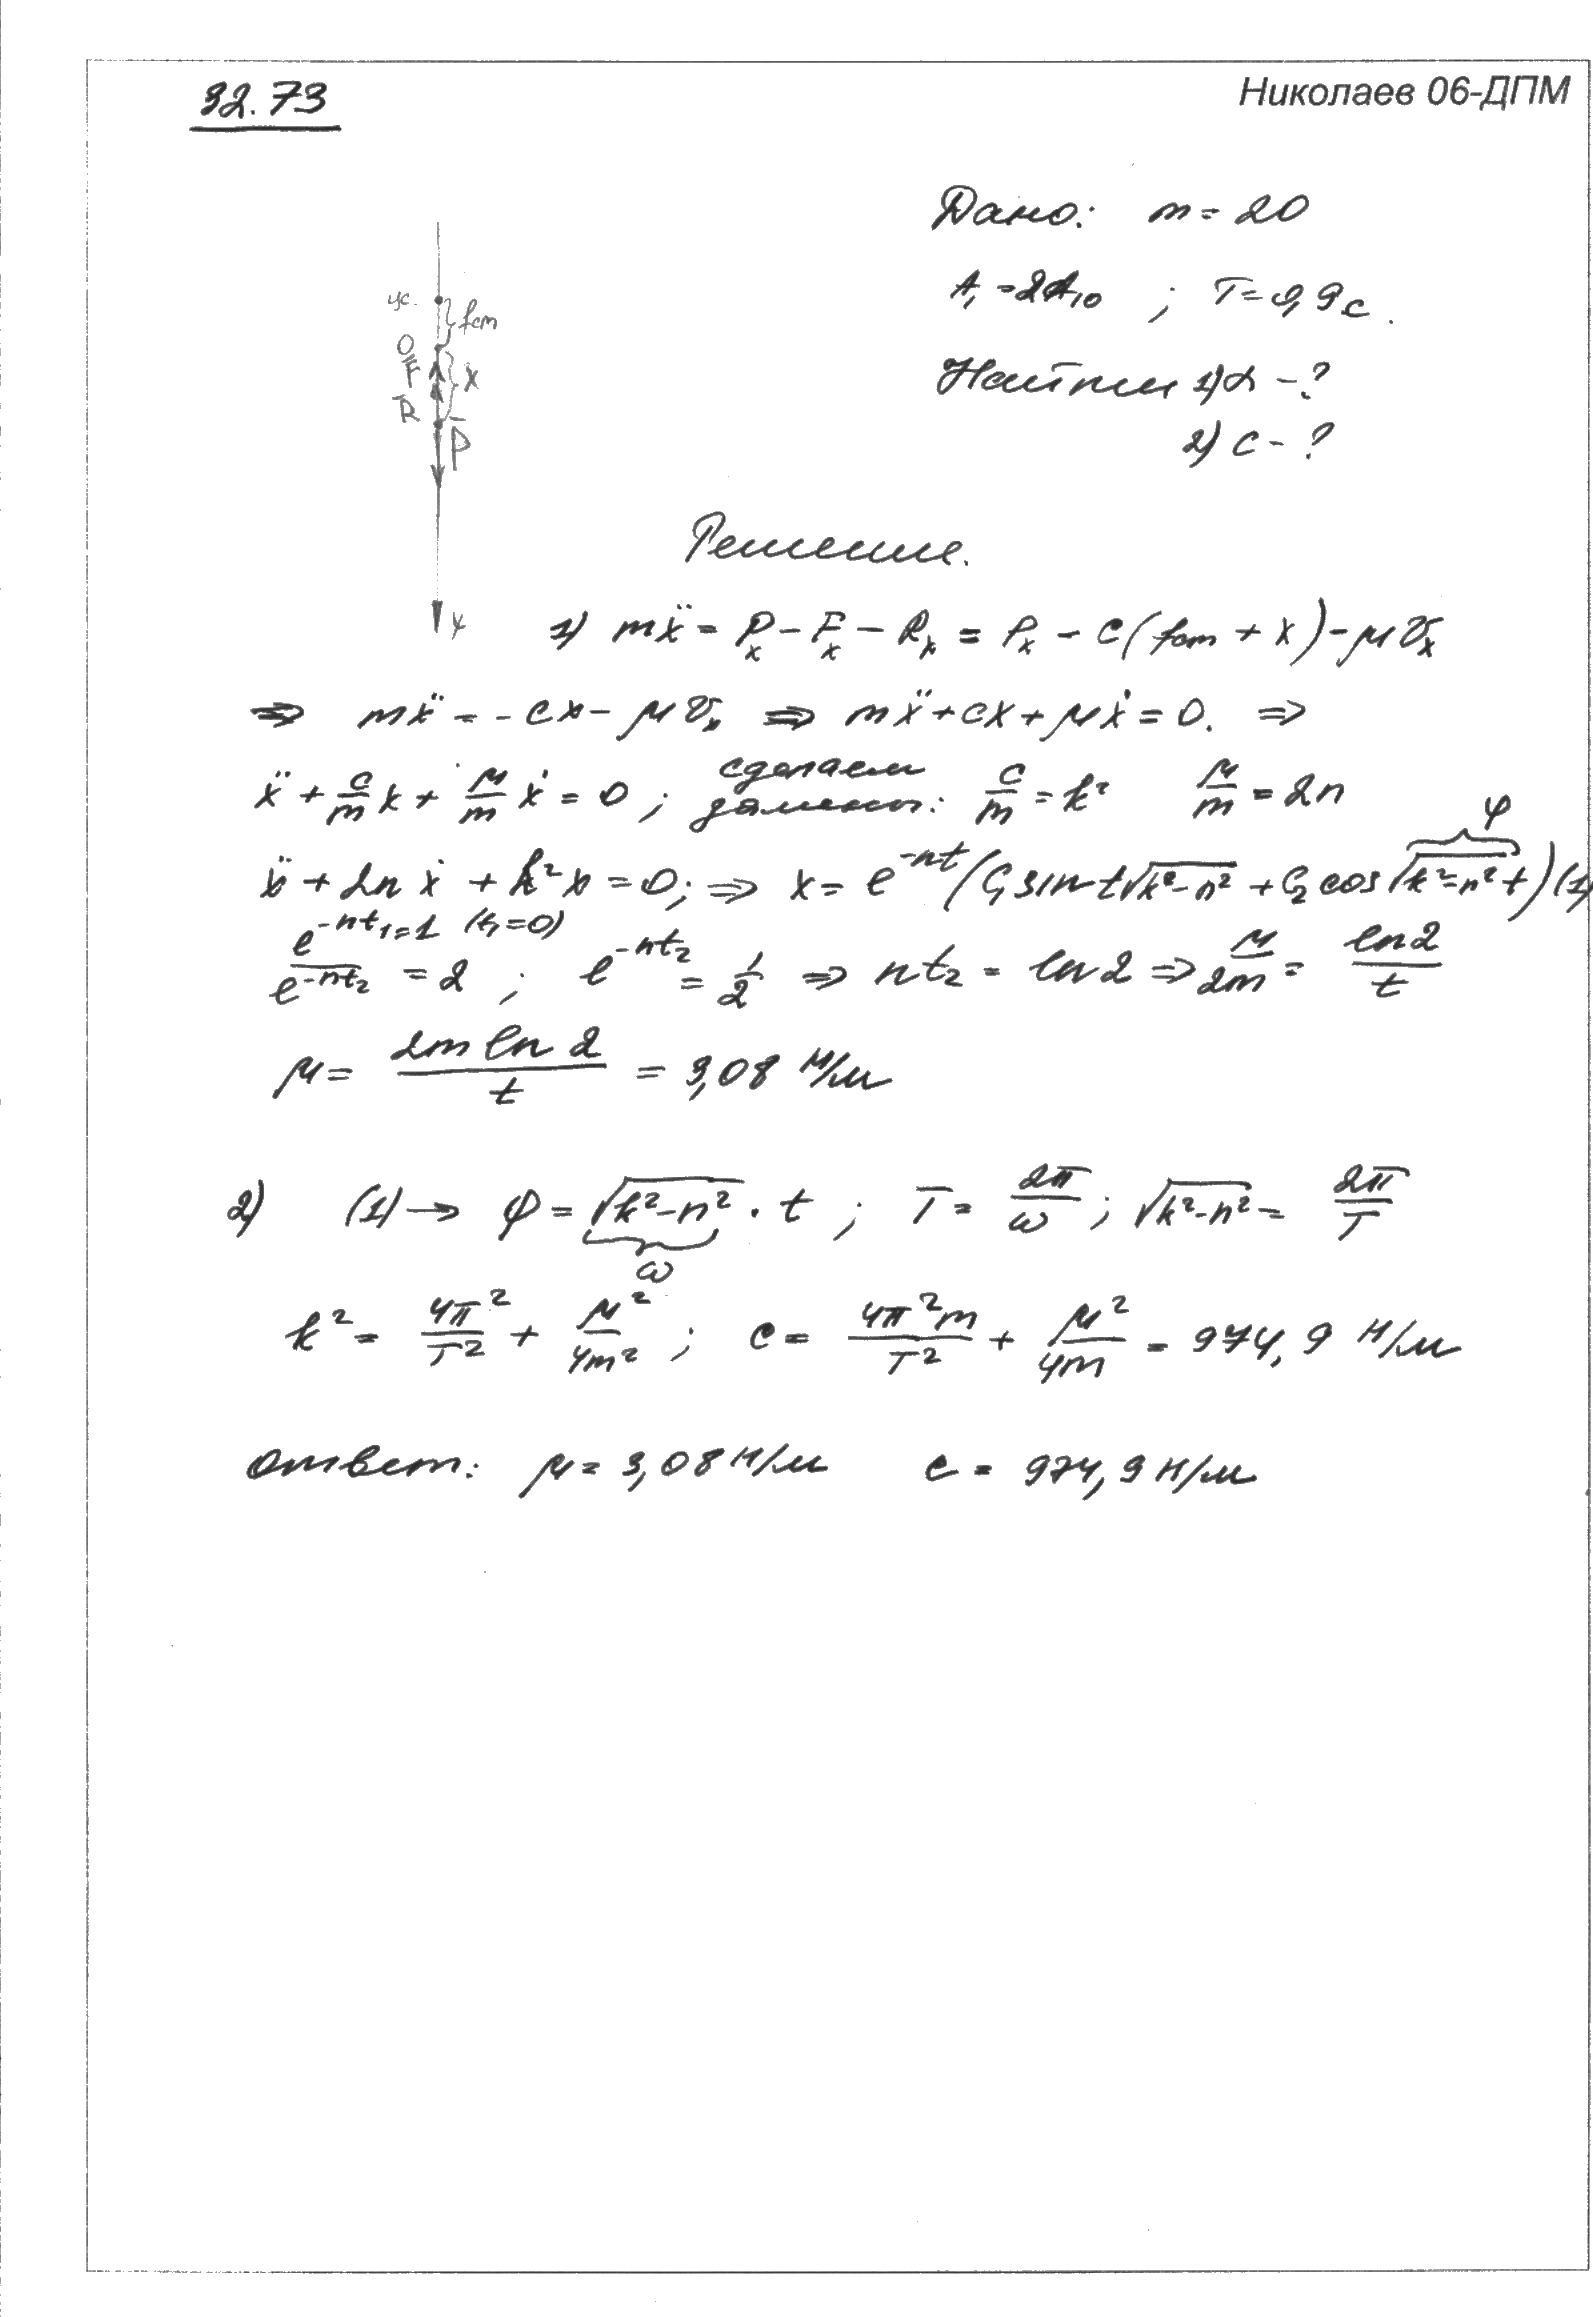 32.73
Николаев 06-ДПМ
Дано: m = 20
A₁ = 2A₁₀ ; T = 0,9 с.
Найти 1) α - ?
2) c - ?
ус.
fст
O
F
X
R
P
Решение.
1) mẍ = Pₓ - Fₓ - Rₓ = Pₓ - c(fст + x) - μVₓ
⇒ mẍ = -cx - μVₓ ⇒ mẍ + cx + μẋ = 0. ⇒
ẍ + c/m x + μ/m ẋ = 0 ; сделаем замены: c/m = k² μ/m = 2n
φ
ẍ + 2n ẋ + k²x = 0; ⇒ x = e^(-nt) (C₁ sin t√(k²-n²) + C₂ cos √(k²-n²) t) (1)
e^(-nt₁)=1 (t₁=0) / e^(-nt₂) = 2 ; e^(-nt₂) = 1/2 ⇒ nt₂ = ln 2 ⇒ μ/2m = ln2/t
μ = 2m ln 2 / t = 3,08 Н/м
2) (1) → φ = √(k²-n²) · t ; T = 2π/ω ; √(k²-n²) = 2π/T
ω
k² = 4π²/T² + μ²/4m² ; c = 4π²m/T² + μ²/4m = 974,9 Н/м
Ответ: μ = 3,08 Н/м c = 974,9 Н/м